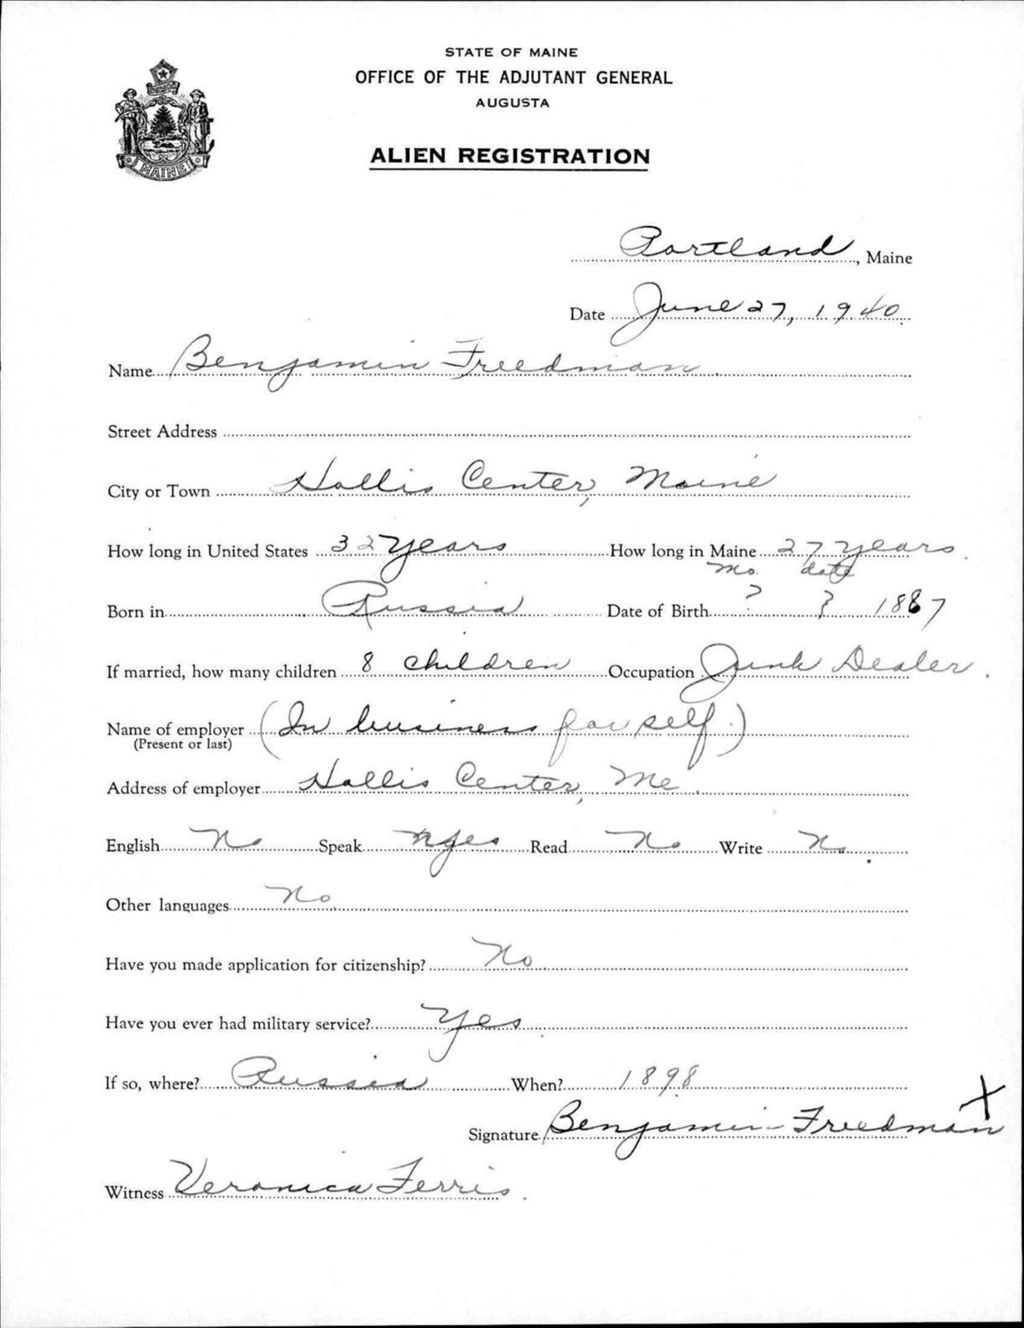 STATE OF MAINE
OFFICE OF THE ADJUTANT GENERAL
AUGUSTA
ALIEN REGISTRATION
MAINE
Portland, Maine
Date June 27, 1940
Name Benjamin Freedman.
Street Address
City or Town Hollis Center, Maine
How long in United States 32 years How long in Maine 27 years.
Mo. date
Born in Russia Date of Birth ? ? 1887
If married, how many children 8 children Occupation Junk Dealer.
Name of employer (In business for self.)
(Present or last)
Address of employer Hollis Center, Me.
English No Speak yes Read No Write No.
Other languages No
Have you made application for citizenship? No
Have you ever had military service? Yes
If so, where? Russia When? 1898
X
Signature Benjamin Freedman
Witness Veronica Ferris.